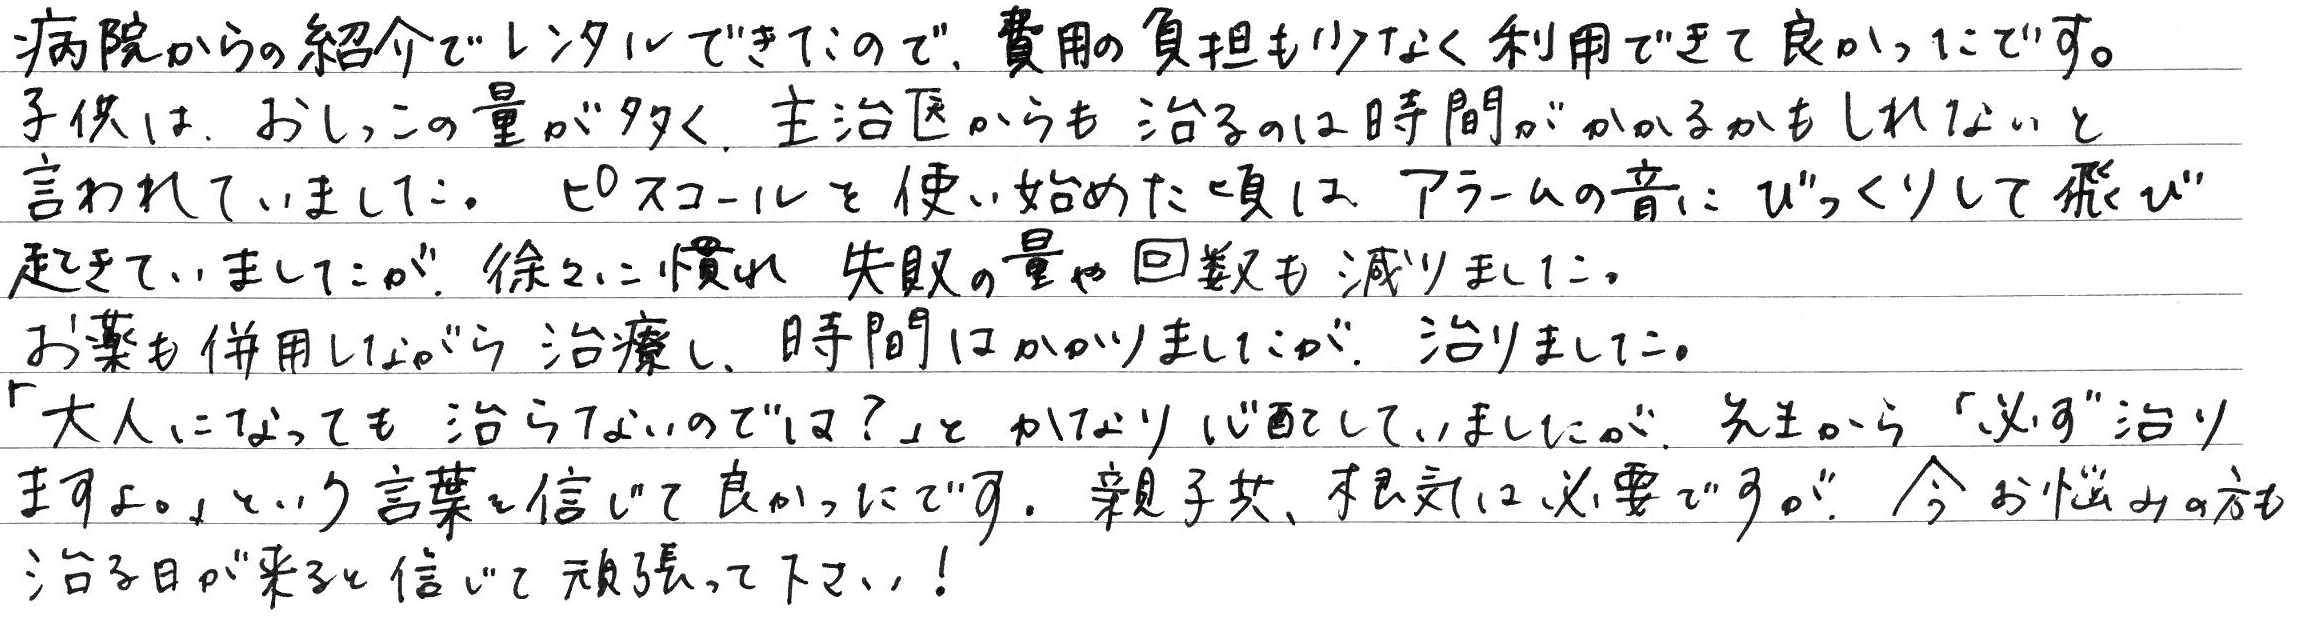 病院からの紹介でレンタルできたので、費用の負担も少なく利用できて良かったです。
子供は、おしっこの量が多く、主治医からも治るのは時間がかかるかもしれないと
言われていました。ピスコールを使い始めた頃は、アラームの音にびっくりして飛び
起きていましたが、徐々に慣れ 失敗の量や回数も減りました。
お薬も併用しながら治療し、時間はかかりましたが、治りました。
「大人になっても治らないのでは?」とかなり心配していましたが、先生から「必ず治り
ますよ。」という言葉を信じて良かったです。親子共、根気は必要ですが、今お悩みの方も
治る日が来ると信じて頑張って下さい!